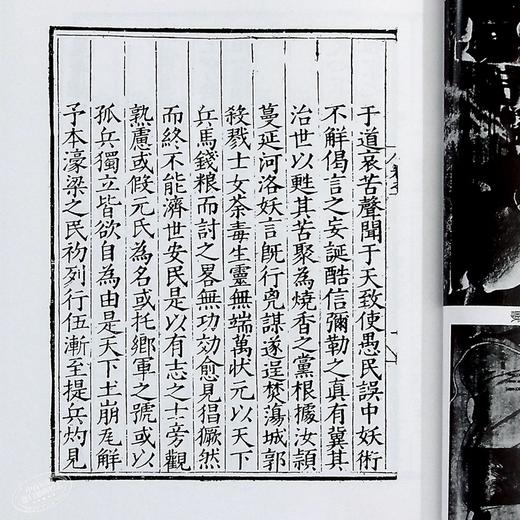 于道哀苦聲聞于天致使愚民誤中妖術
不解偈言之妄誕酷信彌勒之真有冀其
治世以甦其苦聚為燒香之黨根據汝頴
蔓延河洛妖言旣行兇謀遂逞焚蕩城郭
殺戮士女荼毒生靈無端萬狀元以天下
兵馬錢粮而討之畧無功効愈見猖獗然
而終不能濟世安民是以有志之士旁觀
熟慮或假元氏為名或托鄉軍之號或以
孤兵獨立皆欲自為由是天下土崩瓦解
予本濠梁之民初列行伍漸至提兵灼見